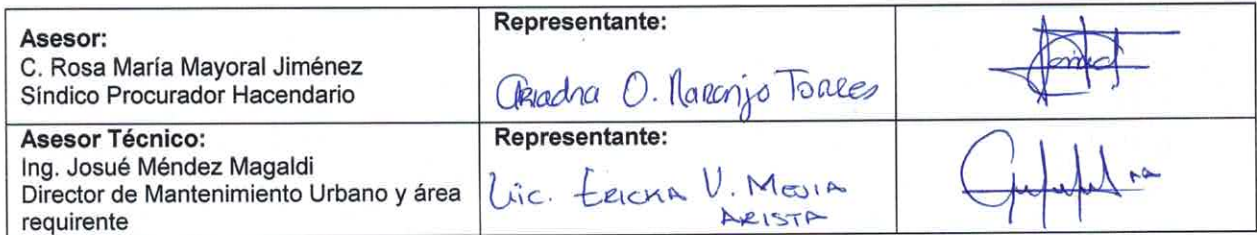 Asesor:
C. Rosa María Mayoral Jiménez
Síndico Procurador Hacendario
Representante:
Ariadna O. Naranjo Torres
Asesor Técnico:
Ing. Josué Méndez Magaldi
Director de Mantenimiento Urbano y área
requirente
Representante:
Lic. Ericka V. Mejia
Arista